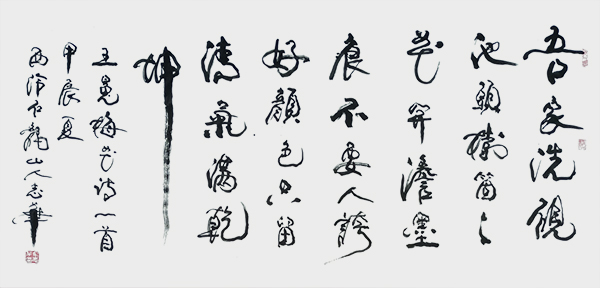 吾家洗硯
池頭樹箇々
花開澹墨
痕不要人誇
好顏色只留
清氣滿乾
坤
王冕梅花詩一首
甲辰夏
西泠石龍山人志華